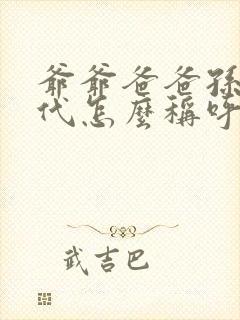 爺爺爸爸孫
代怎麼稱呼
武吉巴